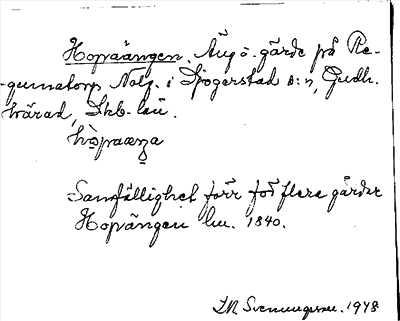 Hopaängen. Äng o. gärde på Re-
gunatorp Nolg. i Sjogerstad s:n, Gudh.
härad, Skb. län.
hòpaæŋa
Samfällighet förr för flera gårdar
Hopängen lm. 1840.
IM Svenungsson. 1948